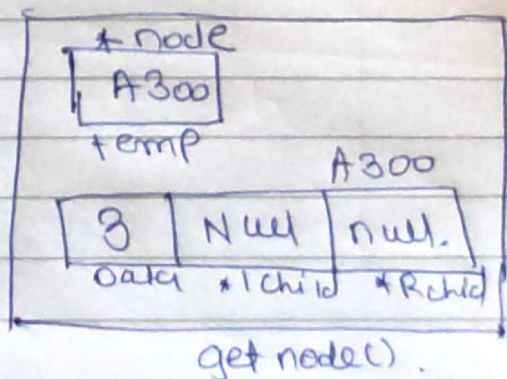 * node
A300
temp
A300
3 Null null.
Data *lchild *Rchild
get node().